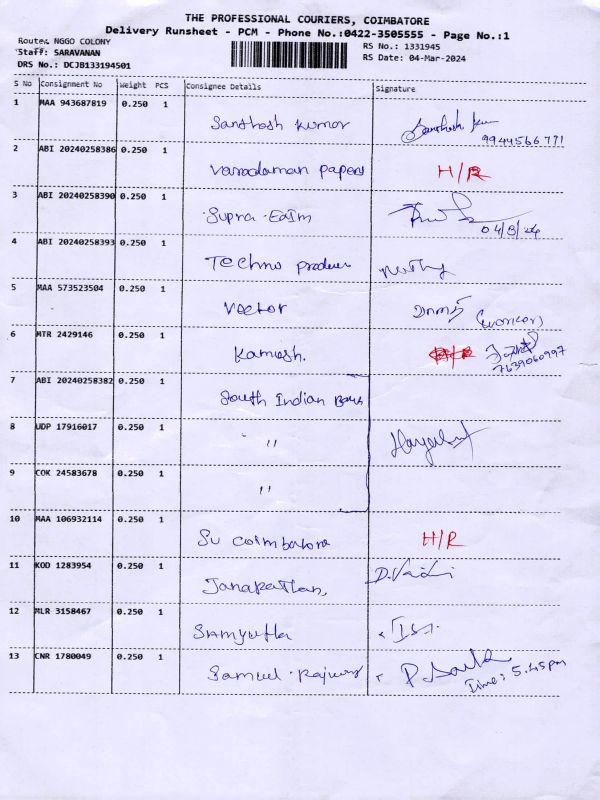 THE PROFESSIONAL COURIERS, COIMBATORE
Delivery Runsheet - PCM - Phone No.:0422-3505555 - Page No.:1
Route: NGGO COLONY
Staff: SARAVANAN
DRS No.: DCJB133194501
RS No.: 1331945
RS Date: 04-Mar-2024
S No Consignment No Weight PCS Consignee Details Signature
1 MAA 943687819 0.250 1
Santhosh Kumar Santhosh Kum
9944566771
2 ABI 20240258386 0.250 1
Varadaman papers H/R
3 ABI 20240258390 0.250 1
Supra Eaim
04/3/24
4 ABI 20240258393 0.250 1
Techno produces
5 MAA 573523504 0.250 1
Vector (worker)
6 MTR 2429146 0.250 1
Kamesh. H/R
7639060997
7 ABI 20240258382 0.250 1
South Indian Bank
8 UDP 17916017 0.250 1
"
9 COK 24583678 0.250 1
"
10 MAA 106932114 0.250 1
Su Coimbatore H/R
11 KOD 1283954 0.250 1
Janakathan, D.Vaidi
12 MLR 3158467 0.250 1
Samyutha
13 CNR 1780049 0.250 1
Samuel
Time: 5.45pm